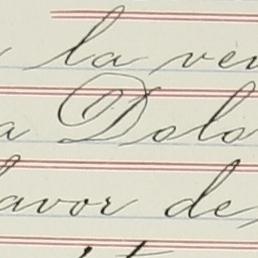 la ven
a Dolo
avor de